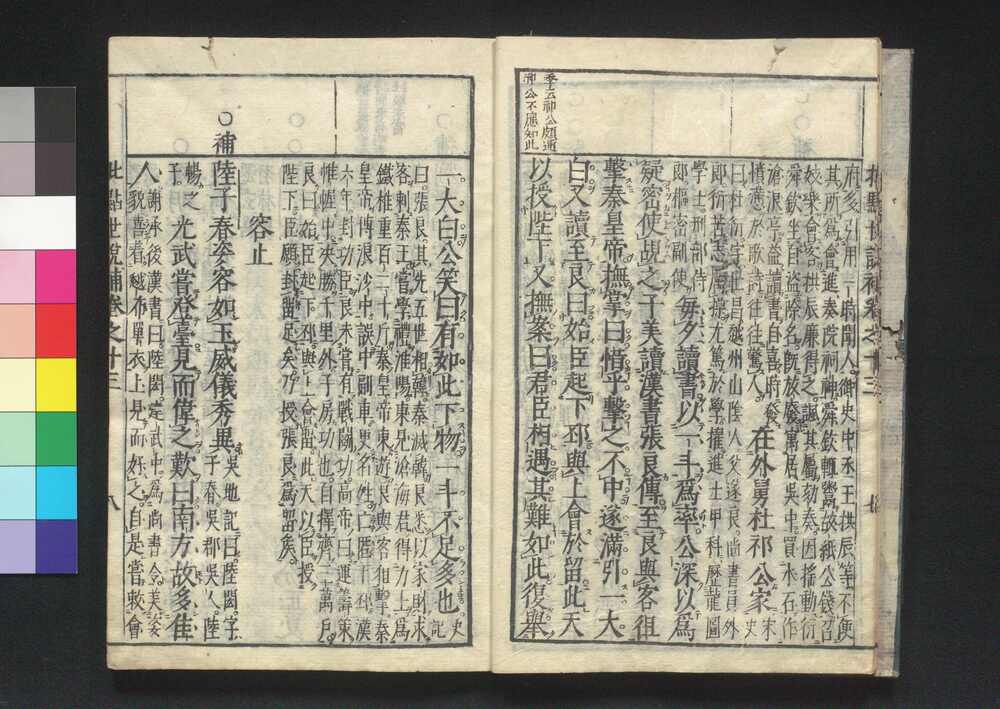 批點世說補卷之十三
府多引用一時聞人御史中丞王拱辰等不便
其所為會進奏院祠神舜欽輒鬻故紙公錢召
妓樂會客拱辰廉得之諷其屬劾奏因搖動衍
舜欽坐自盜除名旣放廢寓居吳中買水石作
滄浪亭益讀書自喜時發
憤懣於歌詩往往驚人
在外舅杜祁公家
宋史
曰杜衍字世昌越州山陰人父遂良尚書員外
郎衍苦志厲操尤篤於學擢進士甲科歷龍圖
學士刑部侍
郎樞密副使
每夕讀書以一斗為率公深以為
疑密使覘之子美讀漢書張良傳至良與客徂
擊秦皇帝撫掌曰惜乎擊之不中遂滿引一大
白又讀至良曰始臣起下邳與上會於留此天
以授陛下又撫案曰君臣相遇其難如此復舉
云祁公頗通
公不應如此
一大白公笑曰有如此下物一斗不足多也
史記
曰張良其先五世相韓秦滅韓良悉以家財求
客刺秦王嘗學禮淮陽東見滄海君得力士為
鐵椎重百二十斤秦皇帝東遊良與客狙擊秦
皇帝博浪沙中誤中副車更名姓亡匿下邳漢
六年封功臣良未嘗有戰鬪功高帝曰運籌策
帷幄中決勝千里外子房功也自擇齊三萬戶
良曰始臣起下邳與上會留此天以臣授
陛下臣願封留足矣乃授張良為留矦
容止
○補陸子春姿容如玉威儀秀異
吳地記曰陸閎字
子春吳郡吳人陸
暢之子
光武嘗登臺見而偉之歎曰南方故多佳
人
謝承後漢書曰陸閎定武中為尚書令美姿
貌喜着越布單衣上見而好之自是嘗敕會
批點世說補卷之十三 八